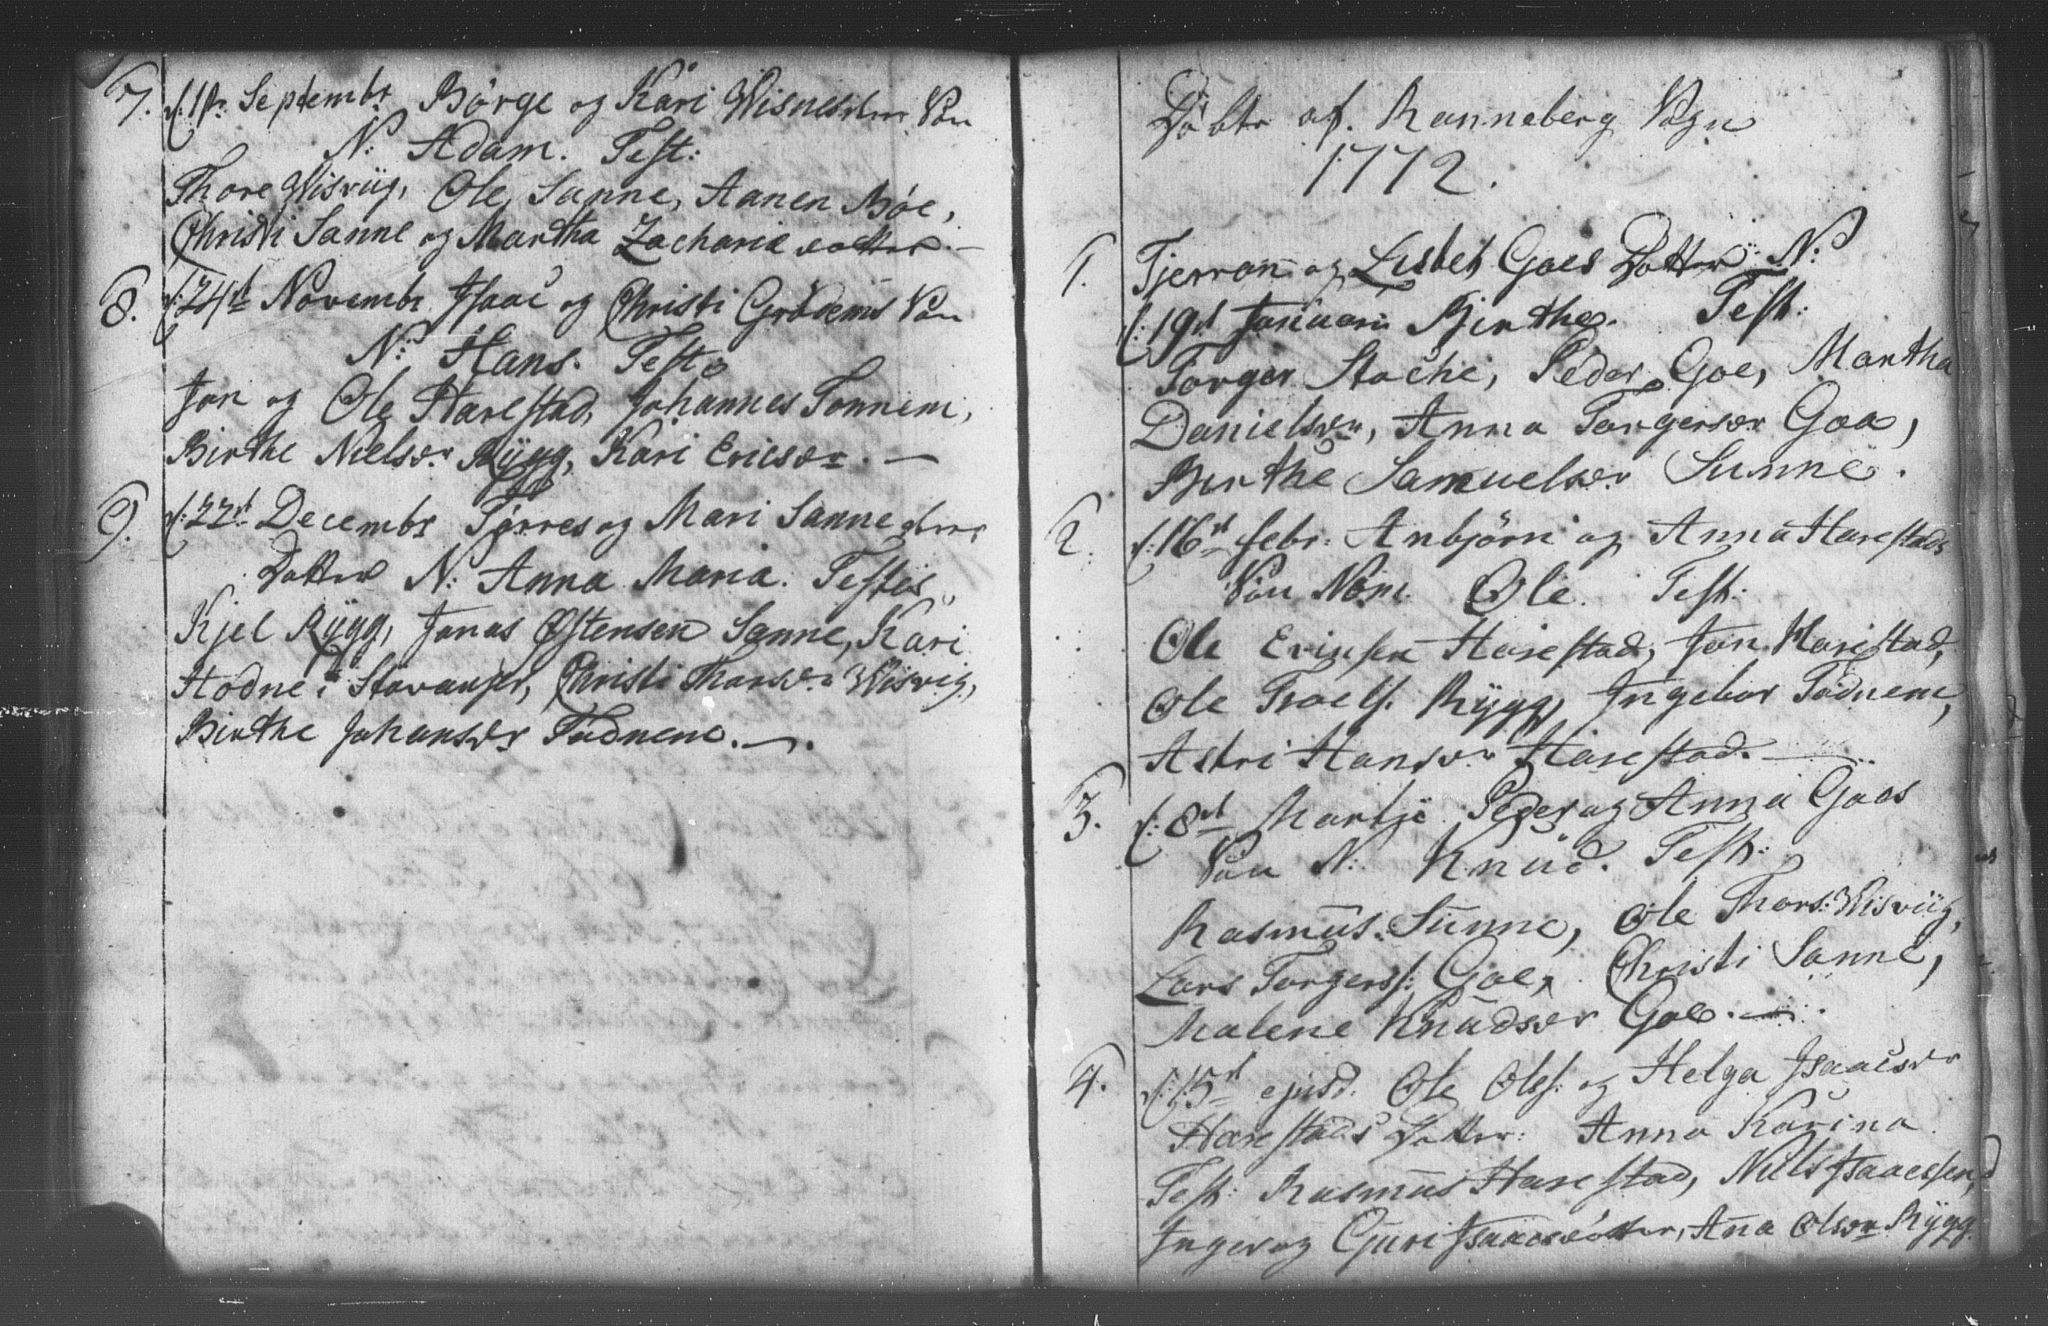 7. d: 1st Septembr Børge og Kari Wisnes Søn
N: Adam. Test:
Thore Wisviig, Ole Sanne, Aanen Bøe,
Christi Sanne og Martha Zachariæ dotter. —
8. d: 24d Novembr Isaac og Christi Grødems Søn
N: Hans. Test:
Jon og Ole Harestad, Johannes Tonnem,
Birthe Nielsdr Rÿgg, Kari Ericsdr. —
9. d: 22d Decembr Tørres og Mari Sanne
Datter N: Anna Maria. Testes
Kjel Rÿgg, Jonas Østensen Sanne, Kari
Hodne i Stavanger, Christi Thorsdr Wisvig,
Birthe Johansdr Todnem. —.
Døbte af Ranneberg Sogn
1772.
1. Tjerran og Lisbet Goes Datter N:
d: 19d Januari Birthe. Test:
Torger Stoche, Peder Goe, Martha
Danielsdr, Anna Torgersdr Goa,
Birthe Samuelsdr Sunne.
2. d: 16d febr: Anbjørn og Anna Harestads
Søn Nom. Ole. Test:
Ole Ericsen Harestad, Jon Harestad,
Ole Troels. Rÿgg, Ingebor Todnem,
Astri Hansdr Harestad. —
3. d: 8d Martji Peder og Anna Goes
Søn N: Knud. Test:
Rasmus Sunne, Ole Thors: Wisviig,
Lars Torgers: Goe, Christi Sanne,
Malene Knudsdr Goe. —
4. d: 15d ejusd. Ole Ols: og Helga Isaacsdr
Harestads Datter: Anna Karina
Test: Rasmus Harestad, Niels Isaacssen,
Inger og Guri Isaacsdotter, Ana Olsdr Rÿgg.